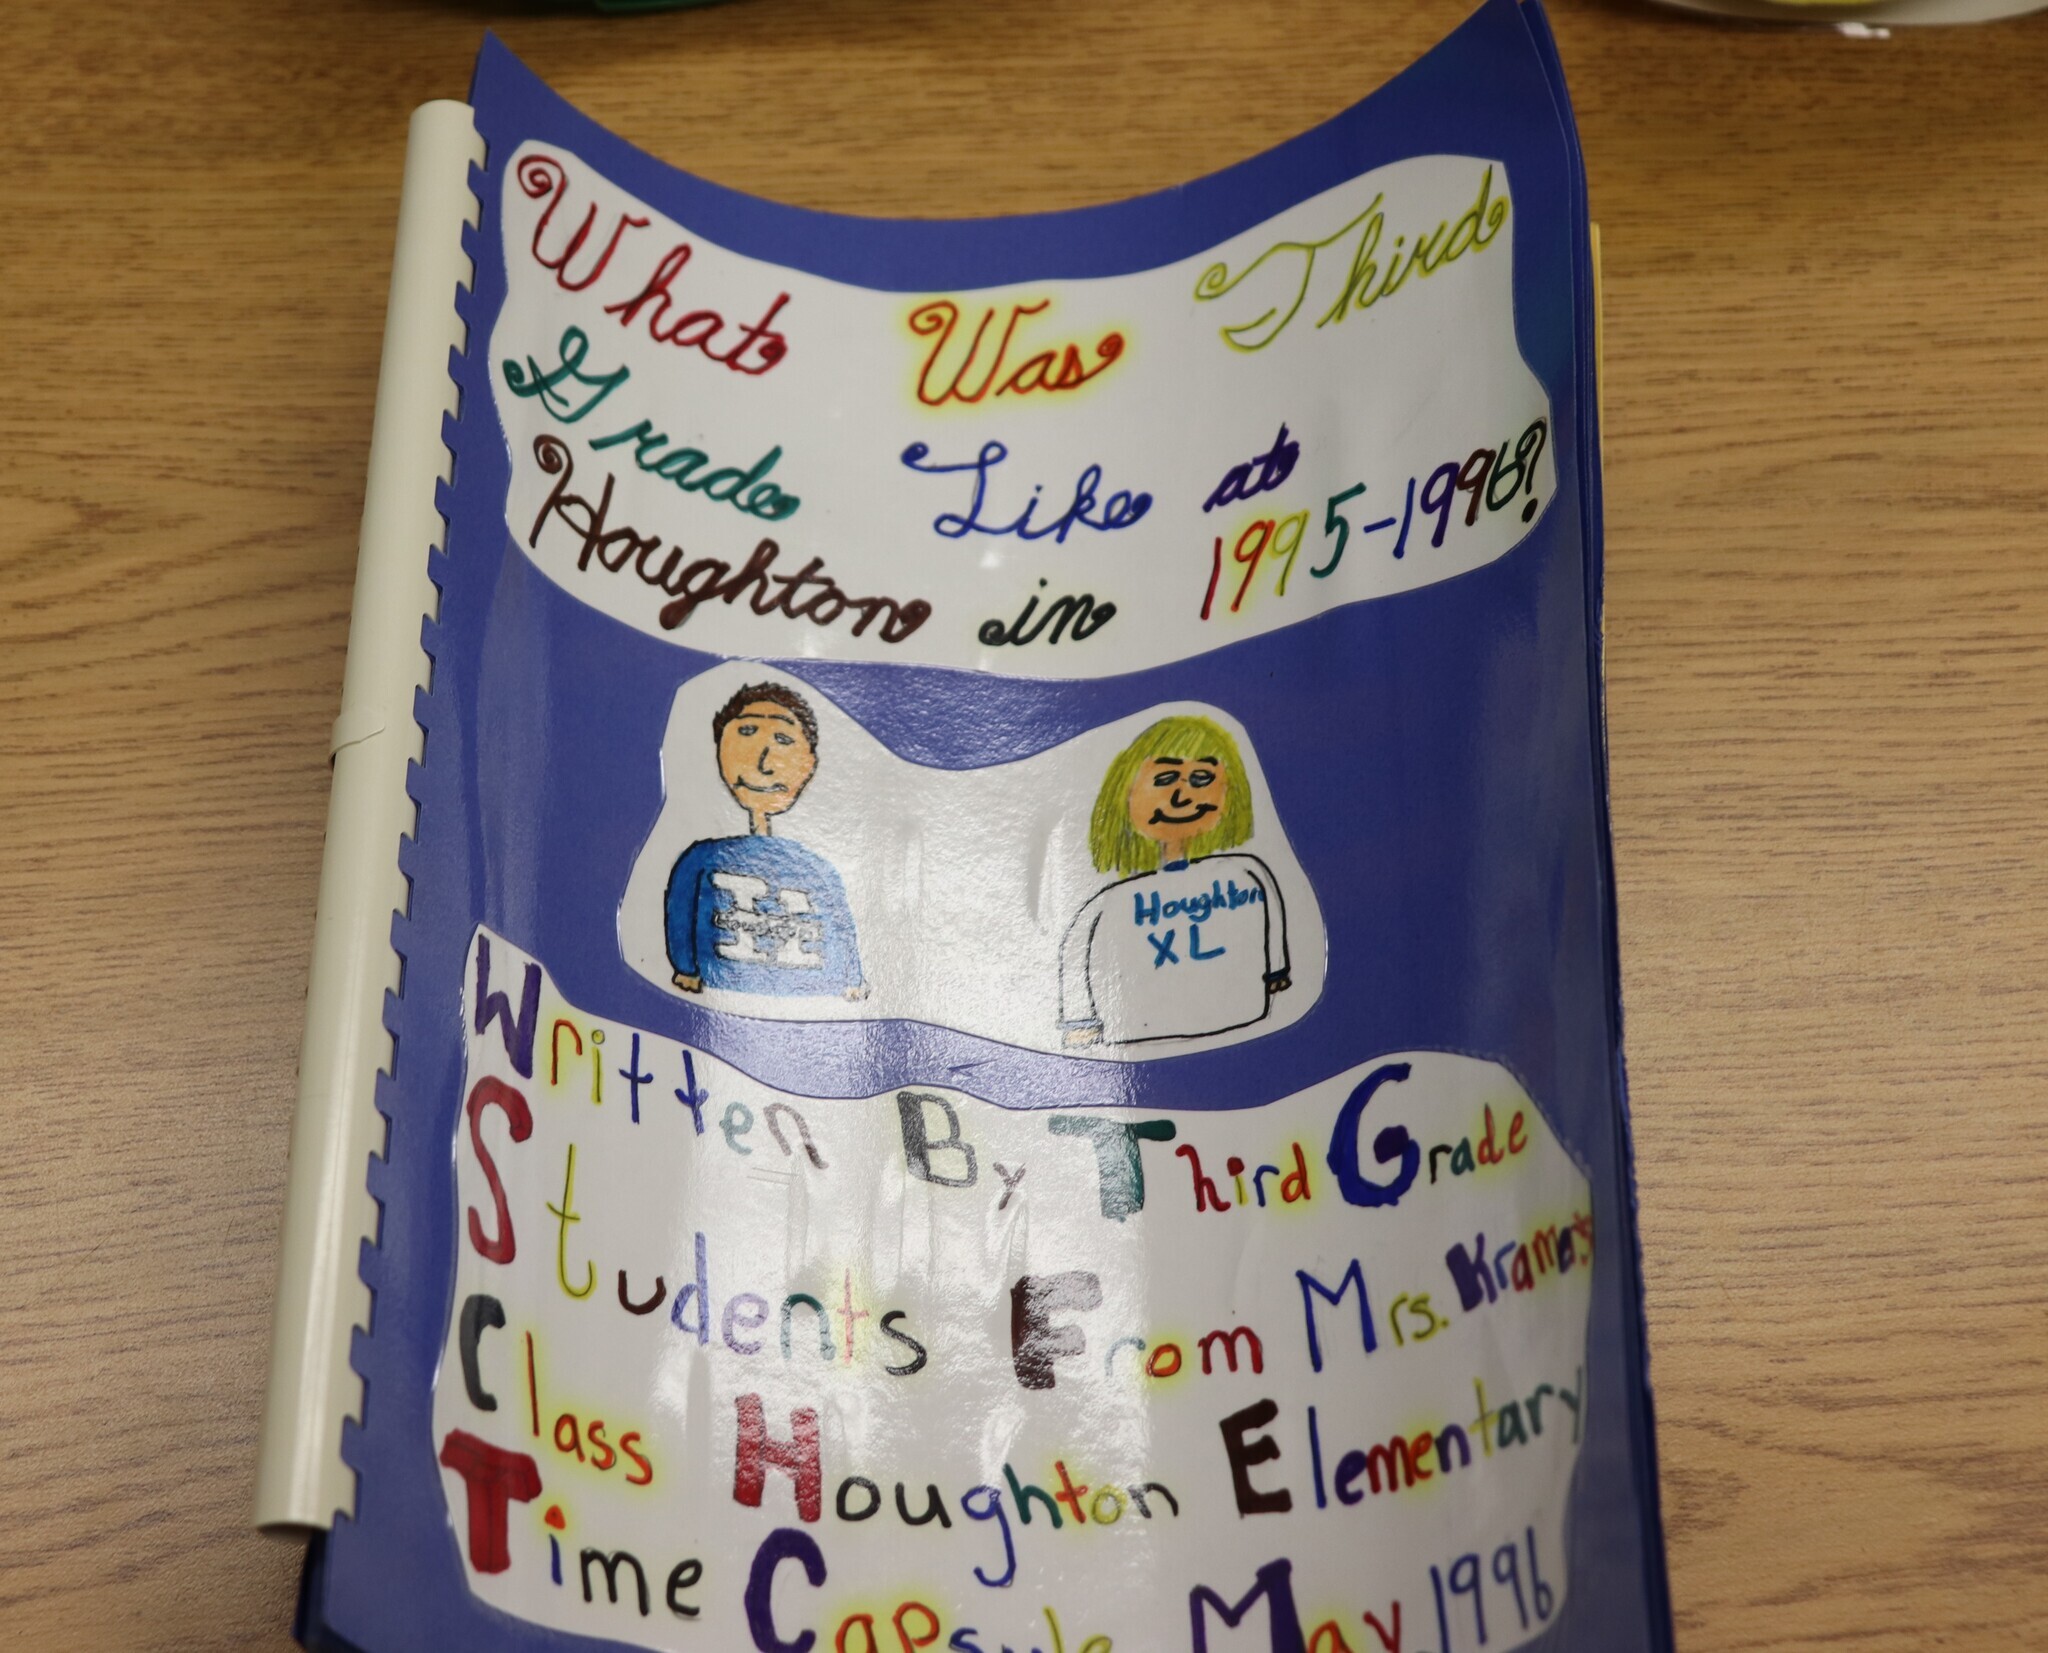 What Was Third
Grade Like at
Houghton in 1995-1996?
H
Houghton
XL
Written By Third Grade
Students From Mrs. Kramer's
Class Houghton Elementary
Time Capsule May, 1996